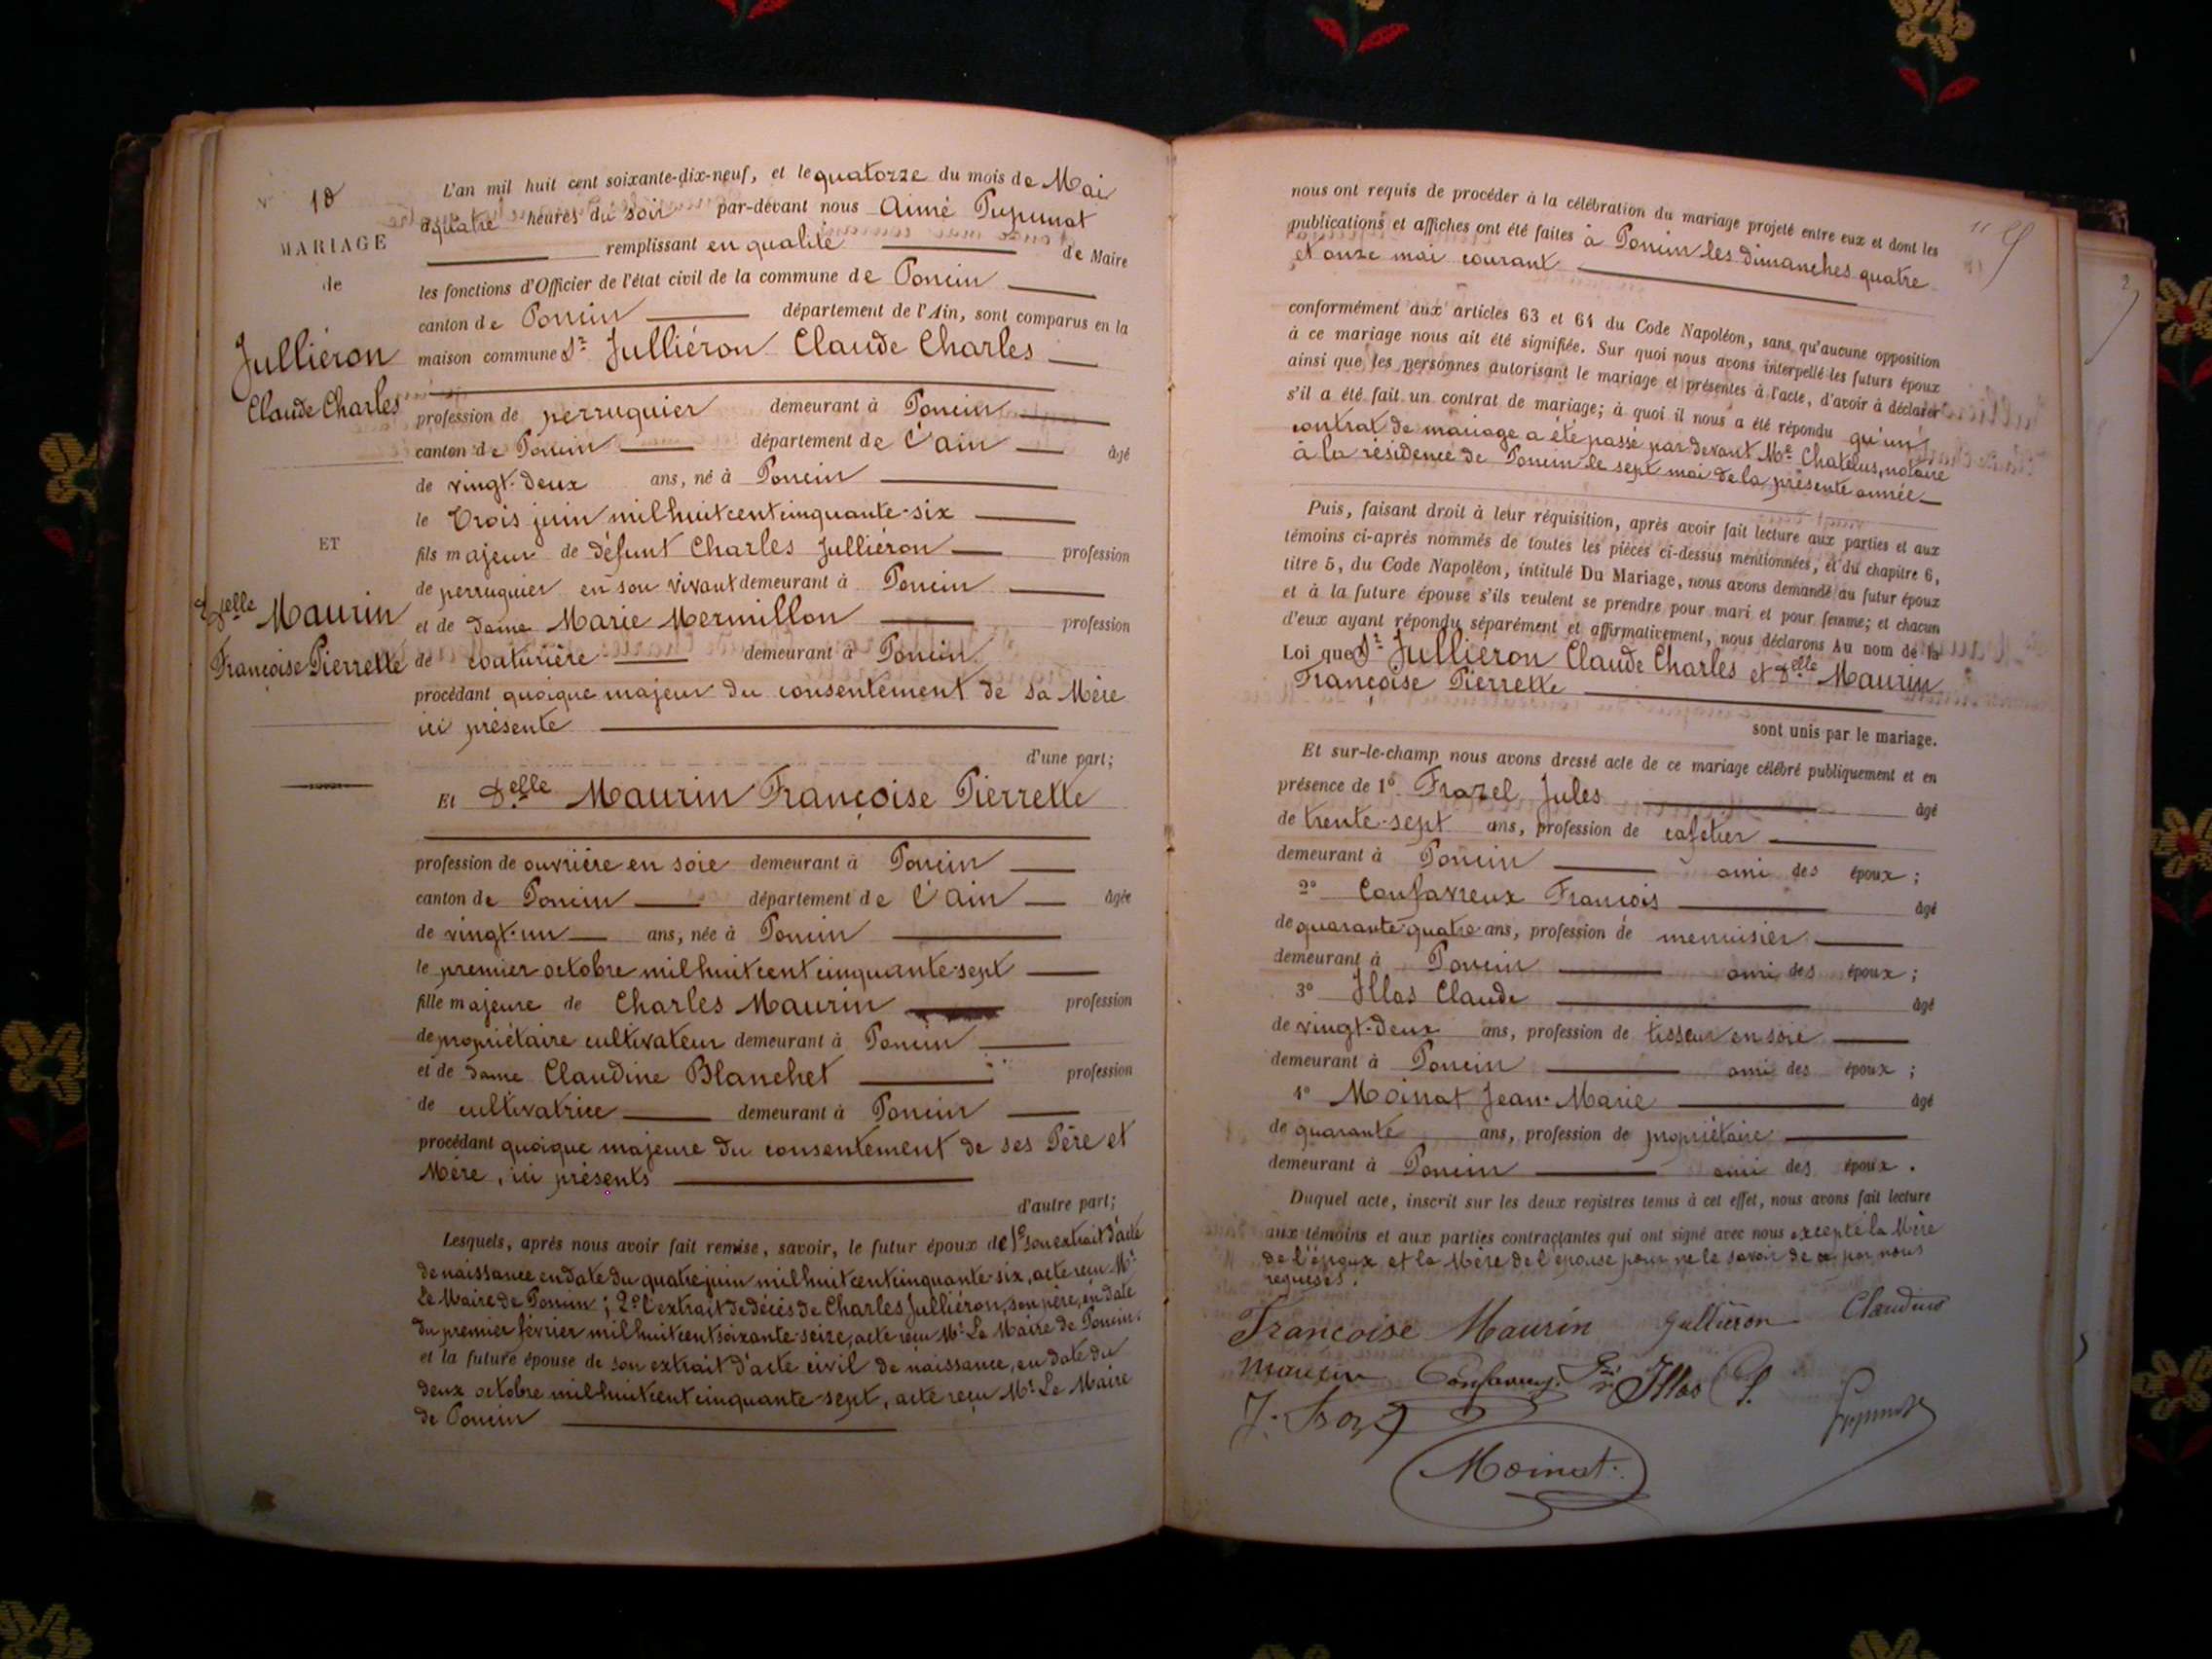 N° 10
MARIAGE
de
Julliéron
Claude Charles
ET
Delle Maurin
Françoise Pierrette
L'an mil huit cent soixante-dix-neuf, et le quatorze du mois de Mai
à quatre heures du soir par-devant nous Aimé
remplissant en qualité de Maire
les fonctions d'Officier de l'état civil de la commune de Poncin
canton de Poncin département de l'Ain, sont comparus en la
maison commune Sr Julliéron Claude Charles
profession de perruquier demeurant à Poncin
canton de Poncin département de l'Ain âgé
de vingt-deux ans, né à Poncin
le Trois juin mil huit cent cinquante-six
fils majeur de défunt Charles Julliéron profession
de perruquier en son vivant demeurant à Poncin
et de dame Marie Mermillon profession
de couturière demeurant à Poncin
procédant quoique majeur du consentement de sa Mère
ici présente
d'une part;
Et Delle Maurin Françoise Pierrette
profession de ouvrière en soie demeurant à Poncin
canton de Poncin département de l'Ain âgée
de vingt-un ans, née à Poncin
le premier octobre mil huit cent cinquante-sept
fille majeure de Charles Maurin profession
de propriétaire cultivateur demeurant à Poncin
et de dame Claudine Blanchet profession
de cultivatrice demeurant à Poncin
procédant quoique majeure du consentement de ses Père et
Mère, ici présents
d'autre part;
Lesquels, après nous avoir fait remise, savoir, le futur époux de 1° son extrait d'acte
de naissance en date du quatre juin mil huit cent cinquante-six, acte reçu Mr
Le Maire de Poncin; 2° l'extrait de décès de Charles Julliéron, son père, en date
du premier février mil huit cent soixante-seize, acte reçu Mr Le Maire de Poncin.
et la future épouse de son extrait d'acte civil de naissance, en date du
deux octobre mil huit cent cinquante-sept, acte reçu Mr Le Maire
de Poncin
nous ont requis de procéder à la célébration du mariage projeté entre eux et dont les
publications et affiches ont été faites à Poncin les dimanches quatre
et onze mai courant
conformément aux articles 63 et 64 du Code Napoléon, sans qu'aucune opposition
à ce mariage nous ait été signifiée. Sur quoi nous avons interpellé les futurs époux
ainsi que les personnes autorisant le mariage et présentes à l'acte, d'avoir à déclarer
s'il a été fait un contrat de mariage; à quoi il nous a été répondu qu'un
contrat de mariage a été passé par devant Me Chatelus, notaire
à la résidence de Poncin le sept mai de la présente année
Puis, faisant droit à leur réquisition, après avoir fait lecture aux parties et aux
témoins ci-après nommés de toutes les pièces ci-dessus mentionnées, et du chapitre 6,
titre 5, du Code Napoléon, intitulé Du Mariage, nous avons demandé au futur époux
et à la future épouse s'ils veulent se prendre pour mari et pour femme; et chacun
d'eux ayant répondu séparément et affirmativement, nous déclarons Au nom de la
Loi que Sr Julliéron Claude Charles et Delle Maurin
Françoise Pierrette
sont unis par le mariage.
Et sur-le-champ nous avons dressé acte de ce mariage célébré publiquement et en
présence de 1° Frazel Jules âgé
de trente-sept ans, profession de cafetier
demeurant à Poncin ami des époux;
2° Confavreux François âgé
de quarante-quatre ans, profession de menuisier
demeurant à Poncin ami des époux;
3° Illas Claude âgé
de vingt-deux ans, profession de tisseur en soie
demeurant à Poncin ami des époux;
4° Moinat Jean-Marie âgé
de quarante ans, profession de propriétaire
demeurant à Poncin ami des époux.
Duquel acte, inscrit sur les deux registres tenus à cet effet, nous avons fait lecture
aux témoins et aux parties contractantes qui ont signé avec nous excepté la Mère
de l'époux et la Mère de l'épouse pour ne le savoir de ce par nous
requises.
Françoise Maurin Julliéron Claudius
Maurin Illas C.
Moinat.